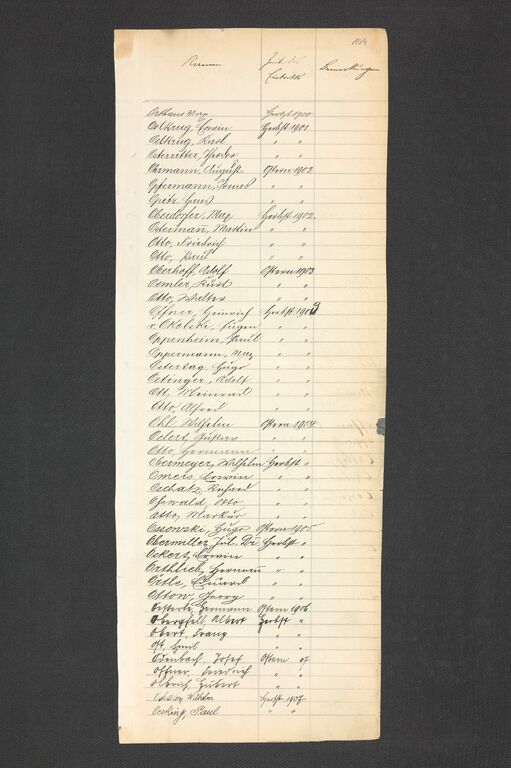 104
Namen Zeit des Eintritts Bemerkungen
Osthaus Herbst 1900
Oelkrug, Erwin Herbst 1901
Oelkrug, Karl " "
Osterritter, Theodor " "
Ohrmann, August Ostern 1902
Opfermann, Jonas " "
Opitz, Hans " "
Oberdorfer, Max Herbst 1902
Ostermañ, Martin " "
Otto, Friedrich " "
Otto, Karl " "
Oberhoff, Adolf Ostern 1903
Oemler, Kurt " "
Otto, Walter " "
Offner, Heinrich Herbst 1903
v. Okolski, Eugen " "
Oppenheim, Paul " "
Oppermann, Max " "
Ostertag, Hugo " "
Oetinger, Adolf " "
Ott, Meinrad " "
Otto Alfred " "
Ohl Wilhelm Ostern 1904
Oelert, Gustav " "
Otto, Hermann " "
Obermeyer, Wilhelm Herbst "
Omeis Erwin " "
Oschatz, Richard " "
Oswald, Otto " "
Otto, Markus " "
Ossowski, Hugo Ostern 1905
Obermiller, Jul. Dr. Herbst "
Ockert, Erwin " "
Orthlieb, Hermañ " "
Örtle, Eduard " "
Ottow, Georg " "
Oesterle, Hermann Ostern 1906
Obergfell, Albert Herbst "
Obert, Franz " "
Ott, Emil " "
Odenbach, Josef Ostern 07
Offner, Friedrich " "
Olbrich, Hubert " "
Wilhelm Herbst 1907
Oesking, Paul " "